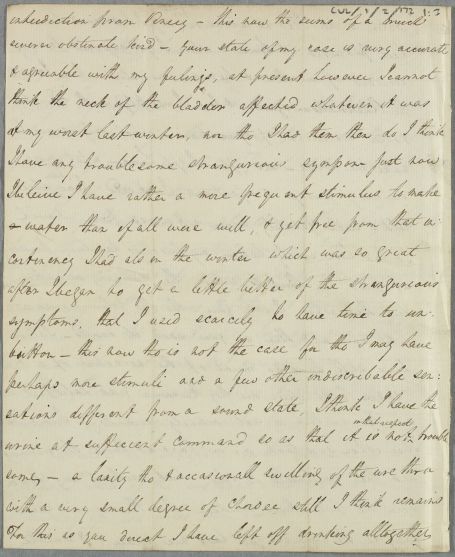 CUL/1/2/172 1:3
interdiction from Venery - this now the sums of a much
severer obstinate kind - your state of my case is very accurate
& agreeable with my feelings, at present however I cannot
think the neck of the bladder affected whatever it was
at my worst last winter, nor tho I had them then do I think
I have any troublesome strangurious sympom just now
I beleive I have rather a more frequent stimulus to make
water than if all were well, & get free from that in
continency I had als in the winter which was so great
after I began to get a little better of the strangurious
symptoms, that I used scarcely to have time to un:
button - this now tho is not the case for tho I may have
perhaps more stimuli and a few other indiscribable sen:
sations different from a sound state, I think I have the
urine at sufficient command so as that it is in that respect not trouble
some, - a laxity tho & accasionall swilling of the urethra
with a very small degree of Chordee still I think remains
For this as you direct I have left off drinking alltogether